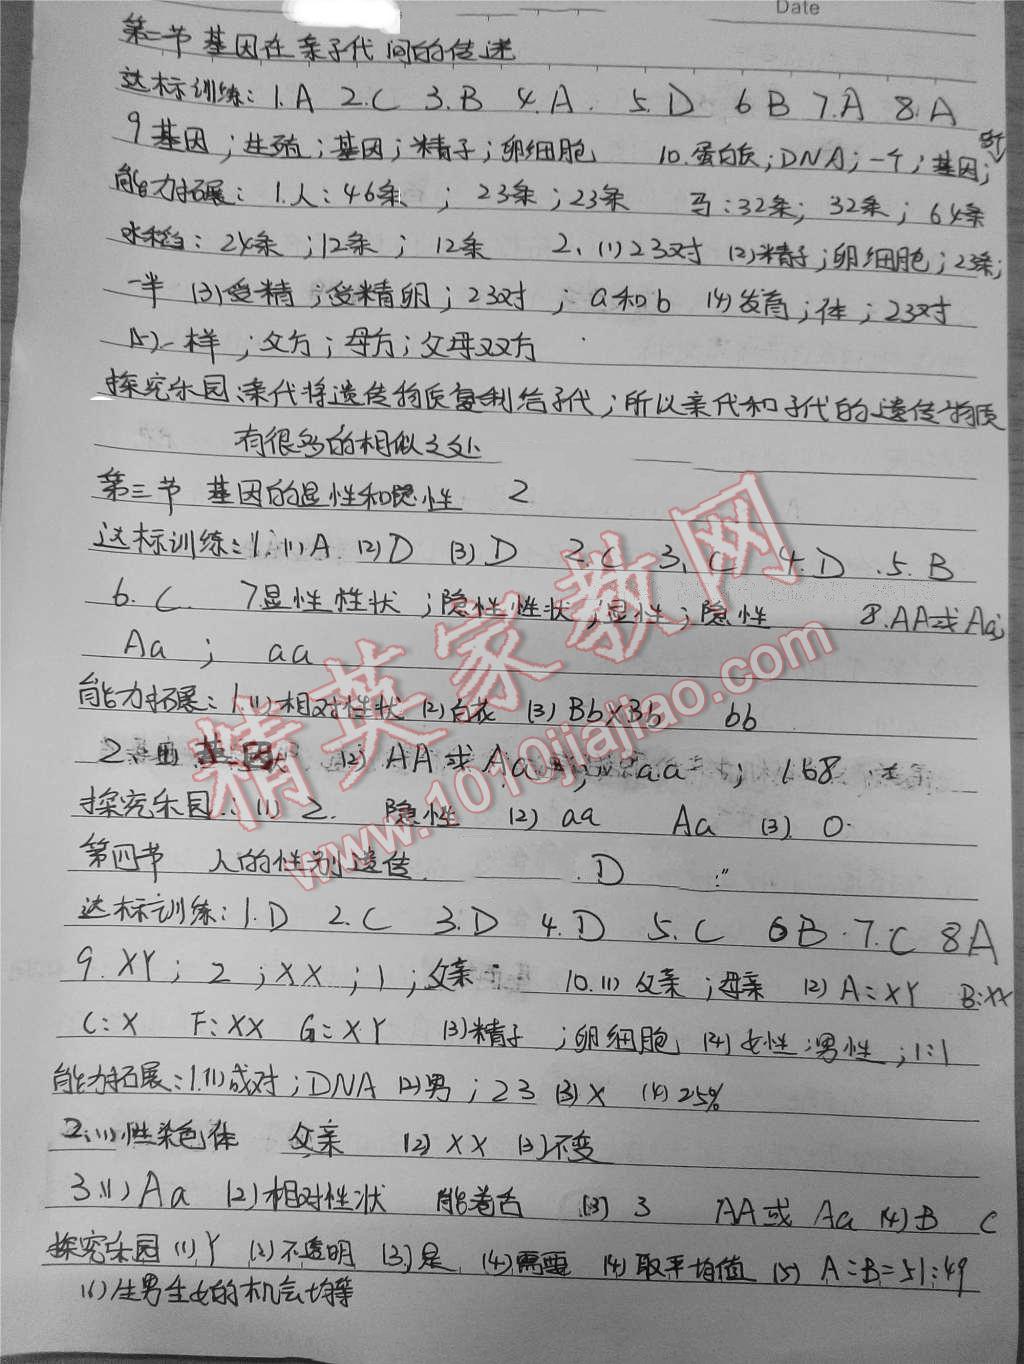 Date
第二节 基因在亲子代间的传递
达标训练: 1.A 2.C 3.B 4.A. 5.D 6 B 7.A 8.A
9 基因;生殖;基因;精子;卵细胞 10.蛋白质;DNA;一个;基因;
能力拓展: 1.人:46条;23条;23条 马:32条;32条;64条
水稻:24条;12条;12条 2、(1)23对 (2)精子;卵细胞;23条;
一半 (3)受精;受精卵;23对;a和b (4)发育;体;23对
(5)一样;父方;母方;父母双方
探究乐园:亲代将遗传物质复制给子代;所以亲代和子代的遗传物质
有很多的相似之处
第三节 基因的显性和隐性 2
达标训练:1.(1)A (2)D (3)D 2.C 3.C 4.D .5.B
6.C. 7显性性状;隐性性状;显性;隐性 8.AA或Aa;
Aa; aa
能力拓展:1.(1)相对性状 (2)白花 (3)Bb×Bb bb
2. 基因 (2)AA或Aa aa; 1.68
探究乐园:(1)2. 隐性 (2)aa Aa (3)0.
第四节 人的性别遗传 .D
达标训练:1.D 2.C 3.D 4.D 5.C 6B.7.C 8A
9.XY;2;XX;1;父亲 10.(1)父亲;母亲 (2)A:XY B:XX
C:X F:XX G:XY (3)精子;卵细胞 (4)女性;男性;1:1
能力拓展:1.(1)成对;DNA (2)男;23 (3)X (4)25%
2.(1)性染色体 父亲 (2)XX (3)不变
3(1)Aa (2)相对性状 能卷舌 (3)3 AA或Aa (4)B C
探究乐园(1)Y (2)不透明 (3)是 (4)需要 (4)取平均值 (5)A:B=51:49
(6)生男生女的机会均等
精英家教网
www.1010jiajiao.com